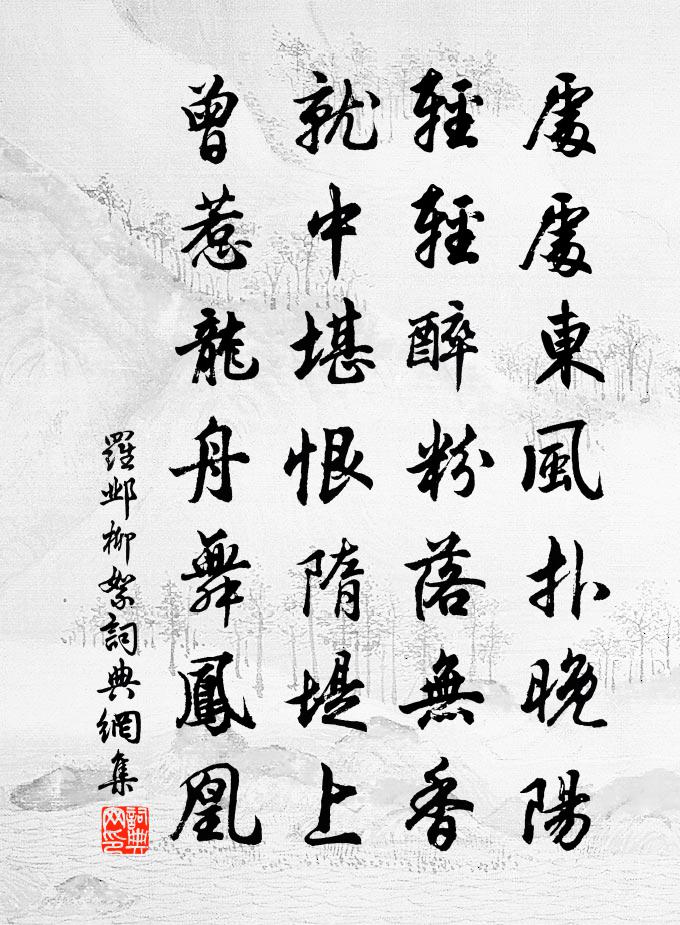 處處東風扑晚陽
輕輕醉粉落無香
就中堪恨隋堤上
曾惹龍舟舞鳳凰
羅邺柳絮詞典網集
詞典網印